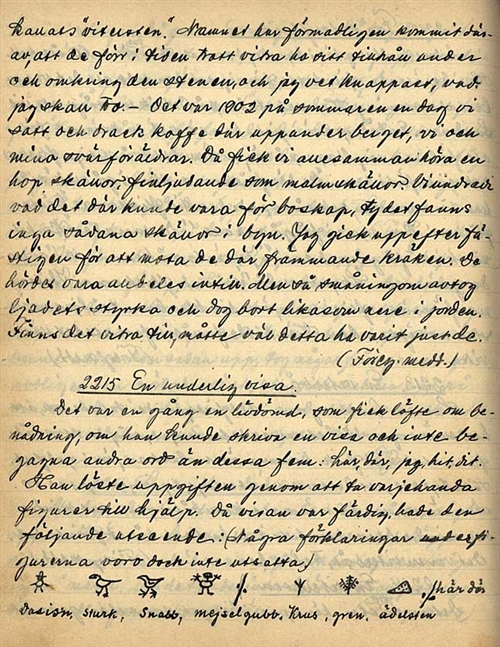 kallats "vitersten." Namnet har förmodligen kommit där-
av att de förr i tiden trott vitra ha sitt tillhåll under
och omkring den stenen, och jag vet knappast, vad
jag skall tro. — Det var 1902 på sommaren en dag vi
satt och drack kaffe där uppunder berget, vi och
mina svärföräldrar. Då fick vi allesamman höra en
hop skällor, finljudande som malmskällor. Vi undrade
vad det där kunde vara för boskap, ty det fanns
inga sådana skällor i byn. Jag gick upp efter fä-
stigen för att mota de där främmande kräken. De
hördes vara alldeles intill. Men så småningom avtog
ljudets styrka och dog bort likasom nere i jorden.
Finns det vitra till, måtte väl detta ha varit just de.
( medd.)
2215 En underlig visa.
Det var en gång en livdömd, som fick löfte om be-
nådning, om han kunde skriva en visa och inte be-
gagna andra ord än dessa fem: här, där, jag, hit, dit.
Han löste uppgiften genom att ta varjehanda
figurer till hjälp. Då visan var färdig, hade den
följande utseende: (Några förklaringar under fi-
gurerna voro dock inte utsatta)
här där
stork, snabb, mejselgubb. krus, gren. ädelsten